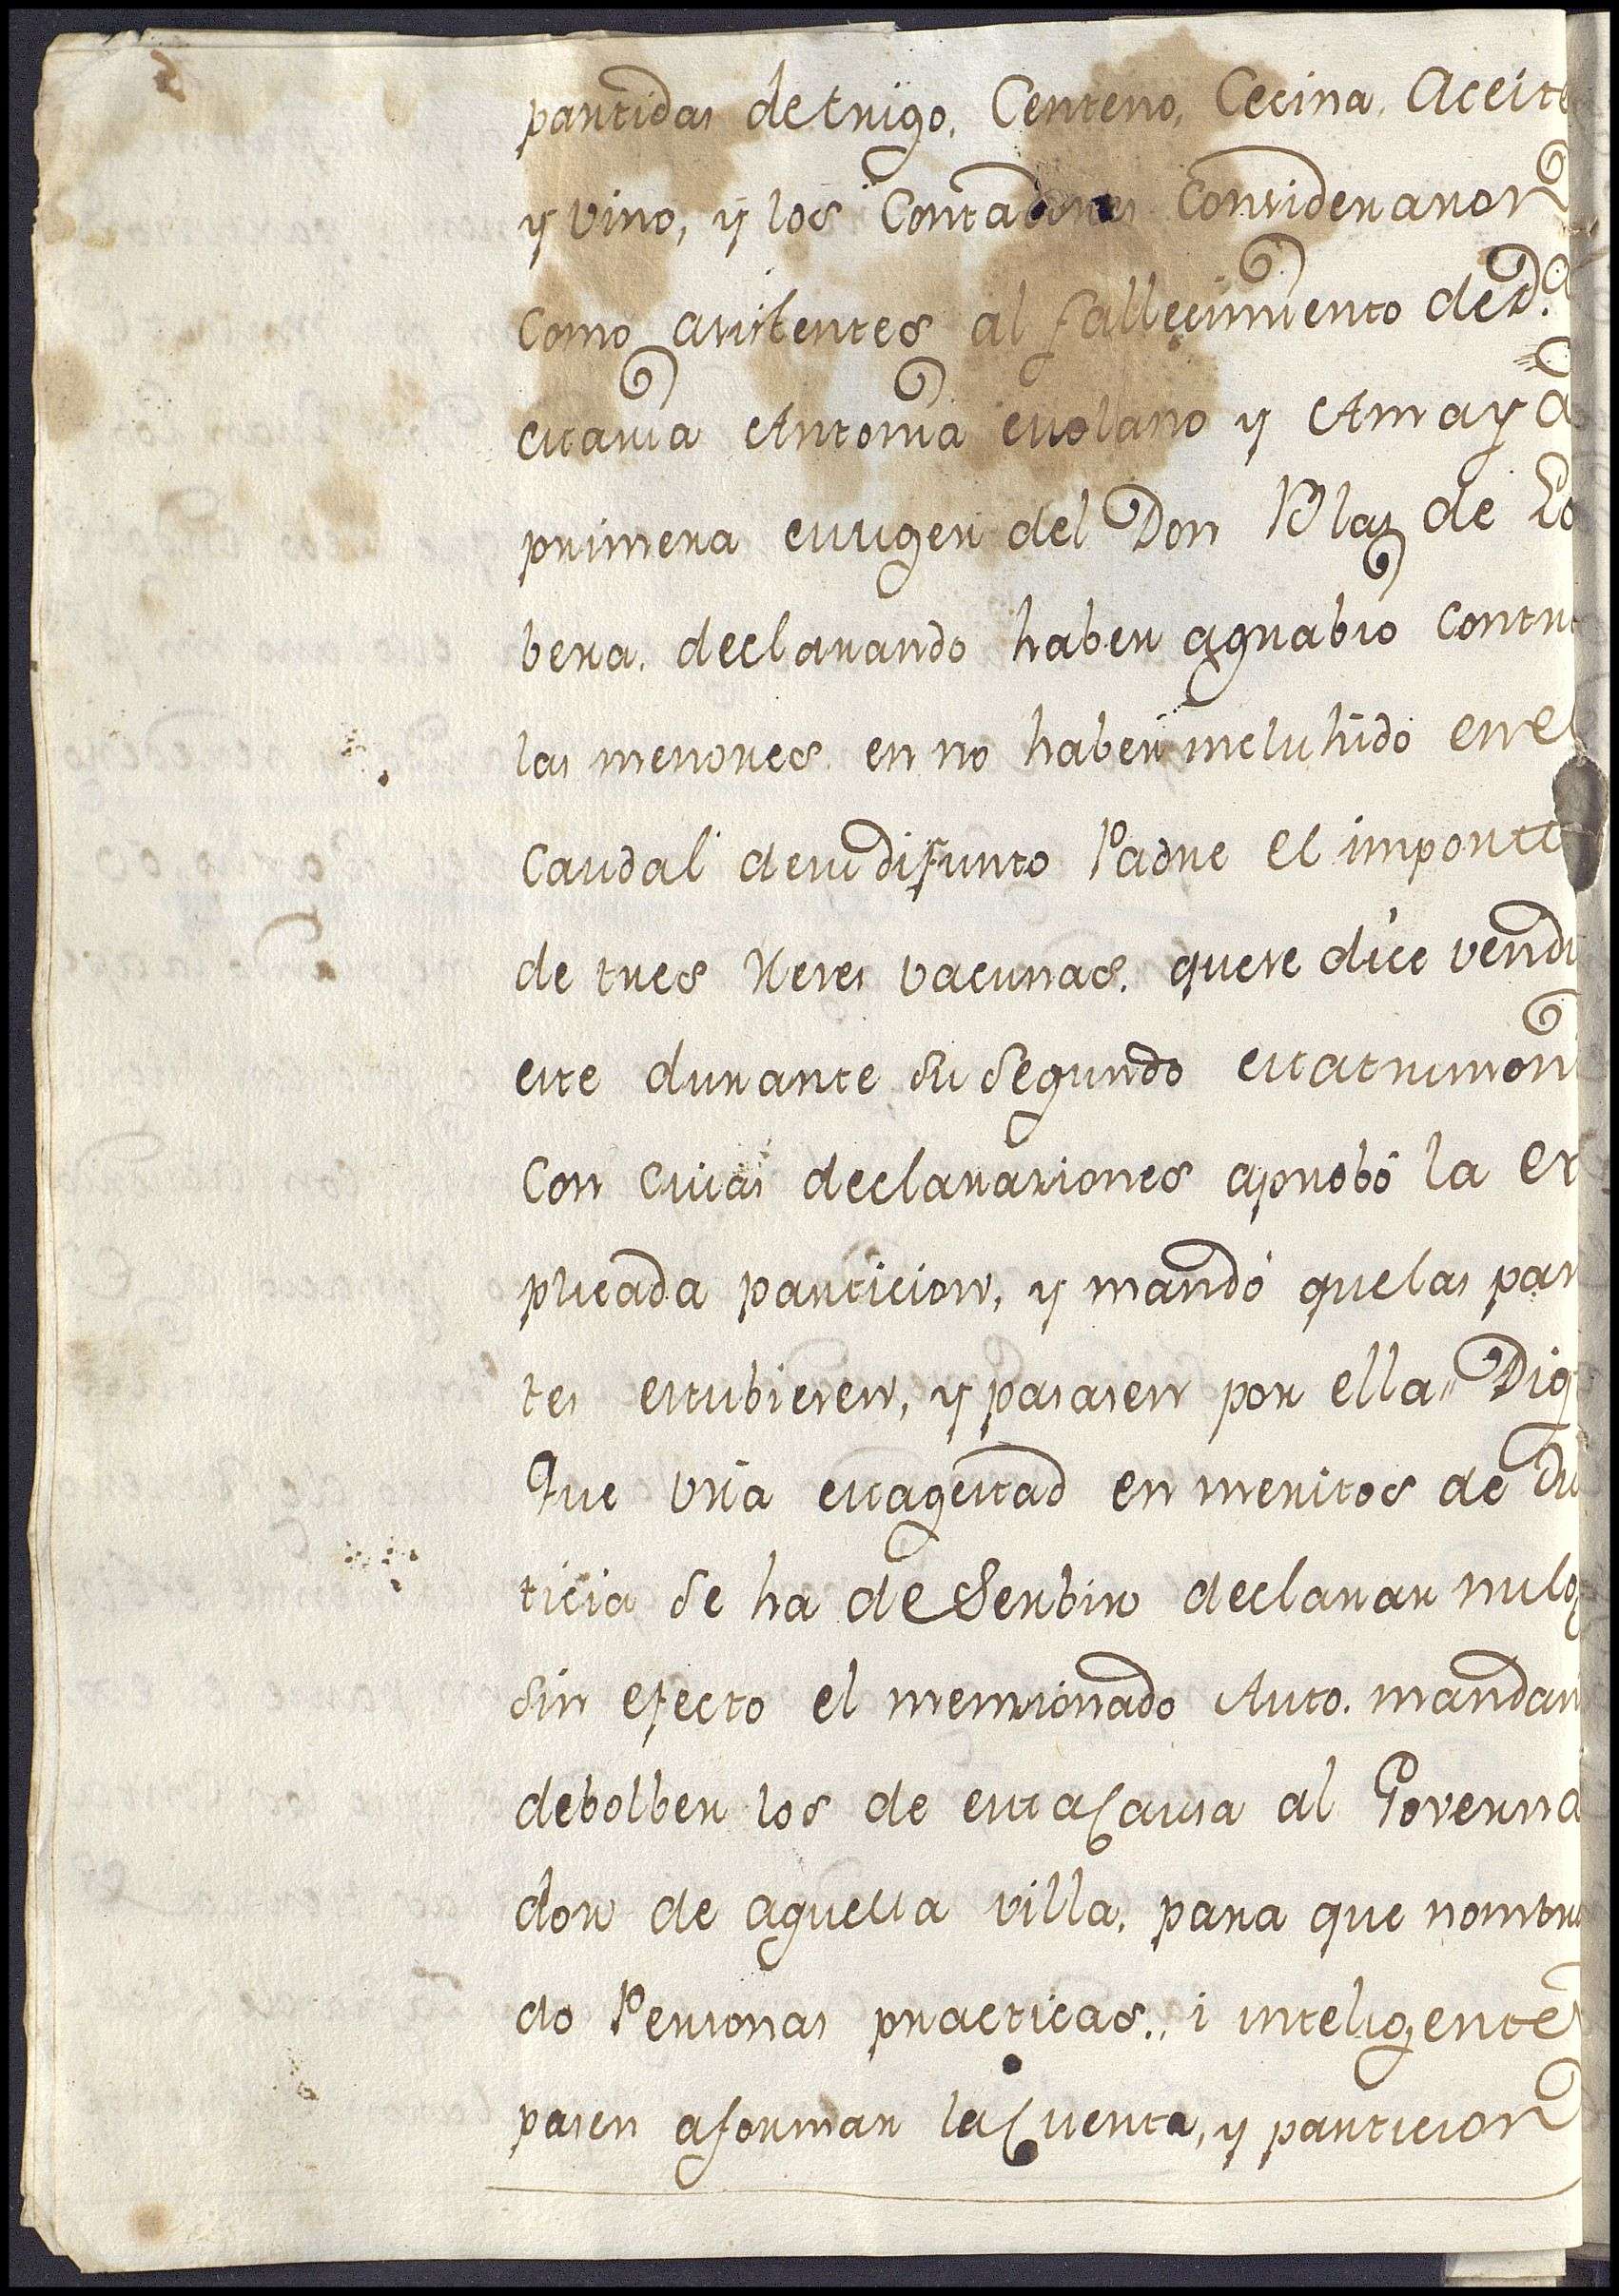 partidas detrigo, Centeno, Cecina, Aceite
y vino, y los Contadores Consideraron
como existentes al fallecimiento de D.ª
Maria Antonia Molano y Amaya
primera Muger del Don Blas de Lo
bera, declarando haber agrabio contra
las menores en no haber incluhido en el
Caudal desu difunto Padre el importe
de tres Reses vacunas, quese dice vendi
este durante su Segundo Matrimoni
Con cuias declaraziones aprobó la ex
plicada particion, y mandó quelas par
tes estubiesen, y pasasen por ella,, Dig
Que Vrã Magestad en meritos de Jus
ticia se ha de Serbir declarar nulo,
sin efecto el menzionado Auto. mandan
debolber los de esta Causa al Governa
dor de aquella villa, para que nombra
do Personas practicas,, i inteligentes
pasen aformar la Cuenta, y particion